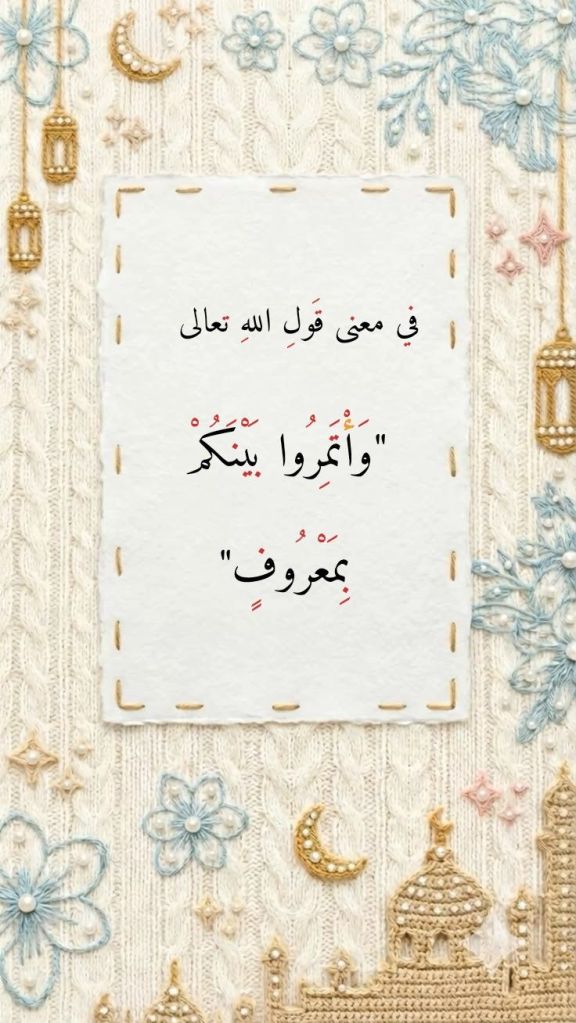 في معنى قَولِ اللهِ تعالى
"وَأْتَمِرُوا بَيْنَكُمْ
بِمَعْرُوفٍ"